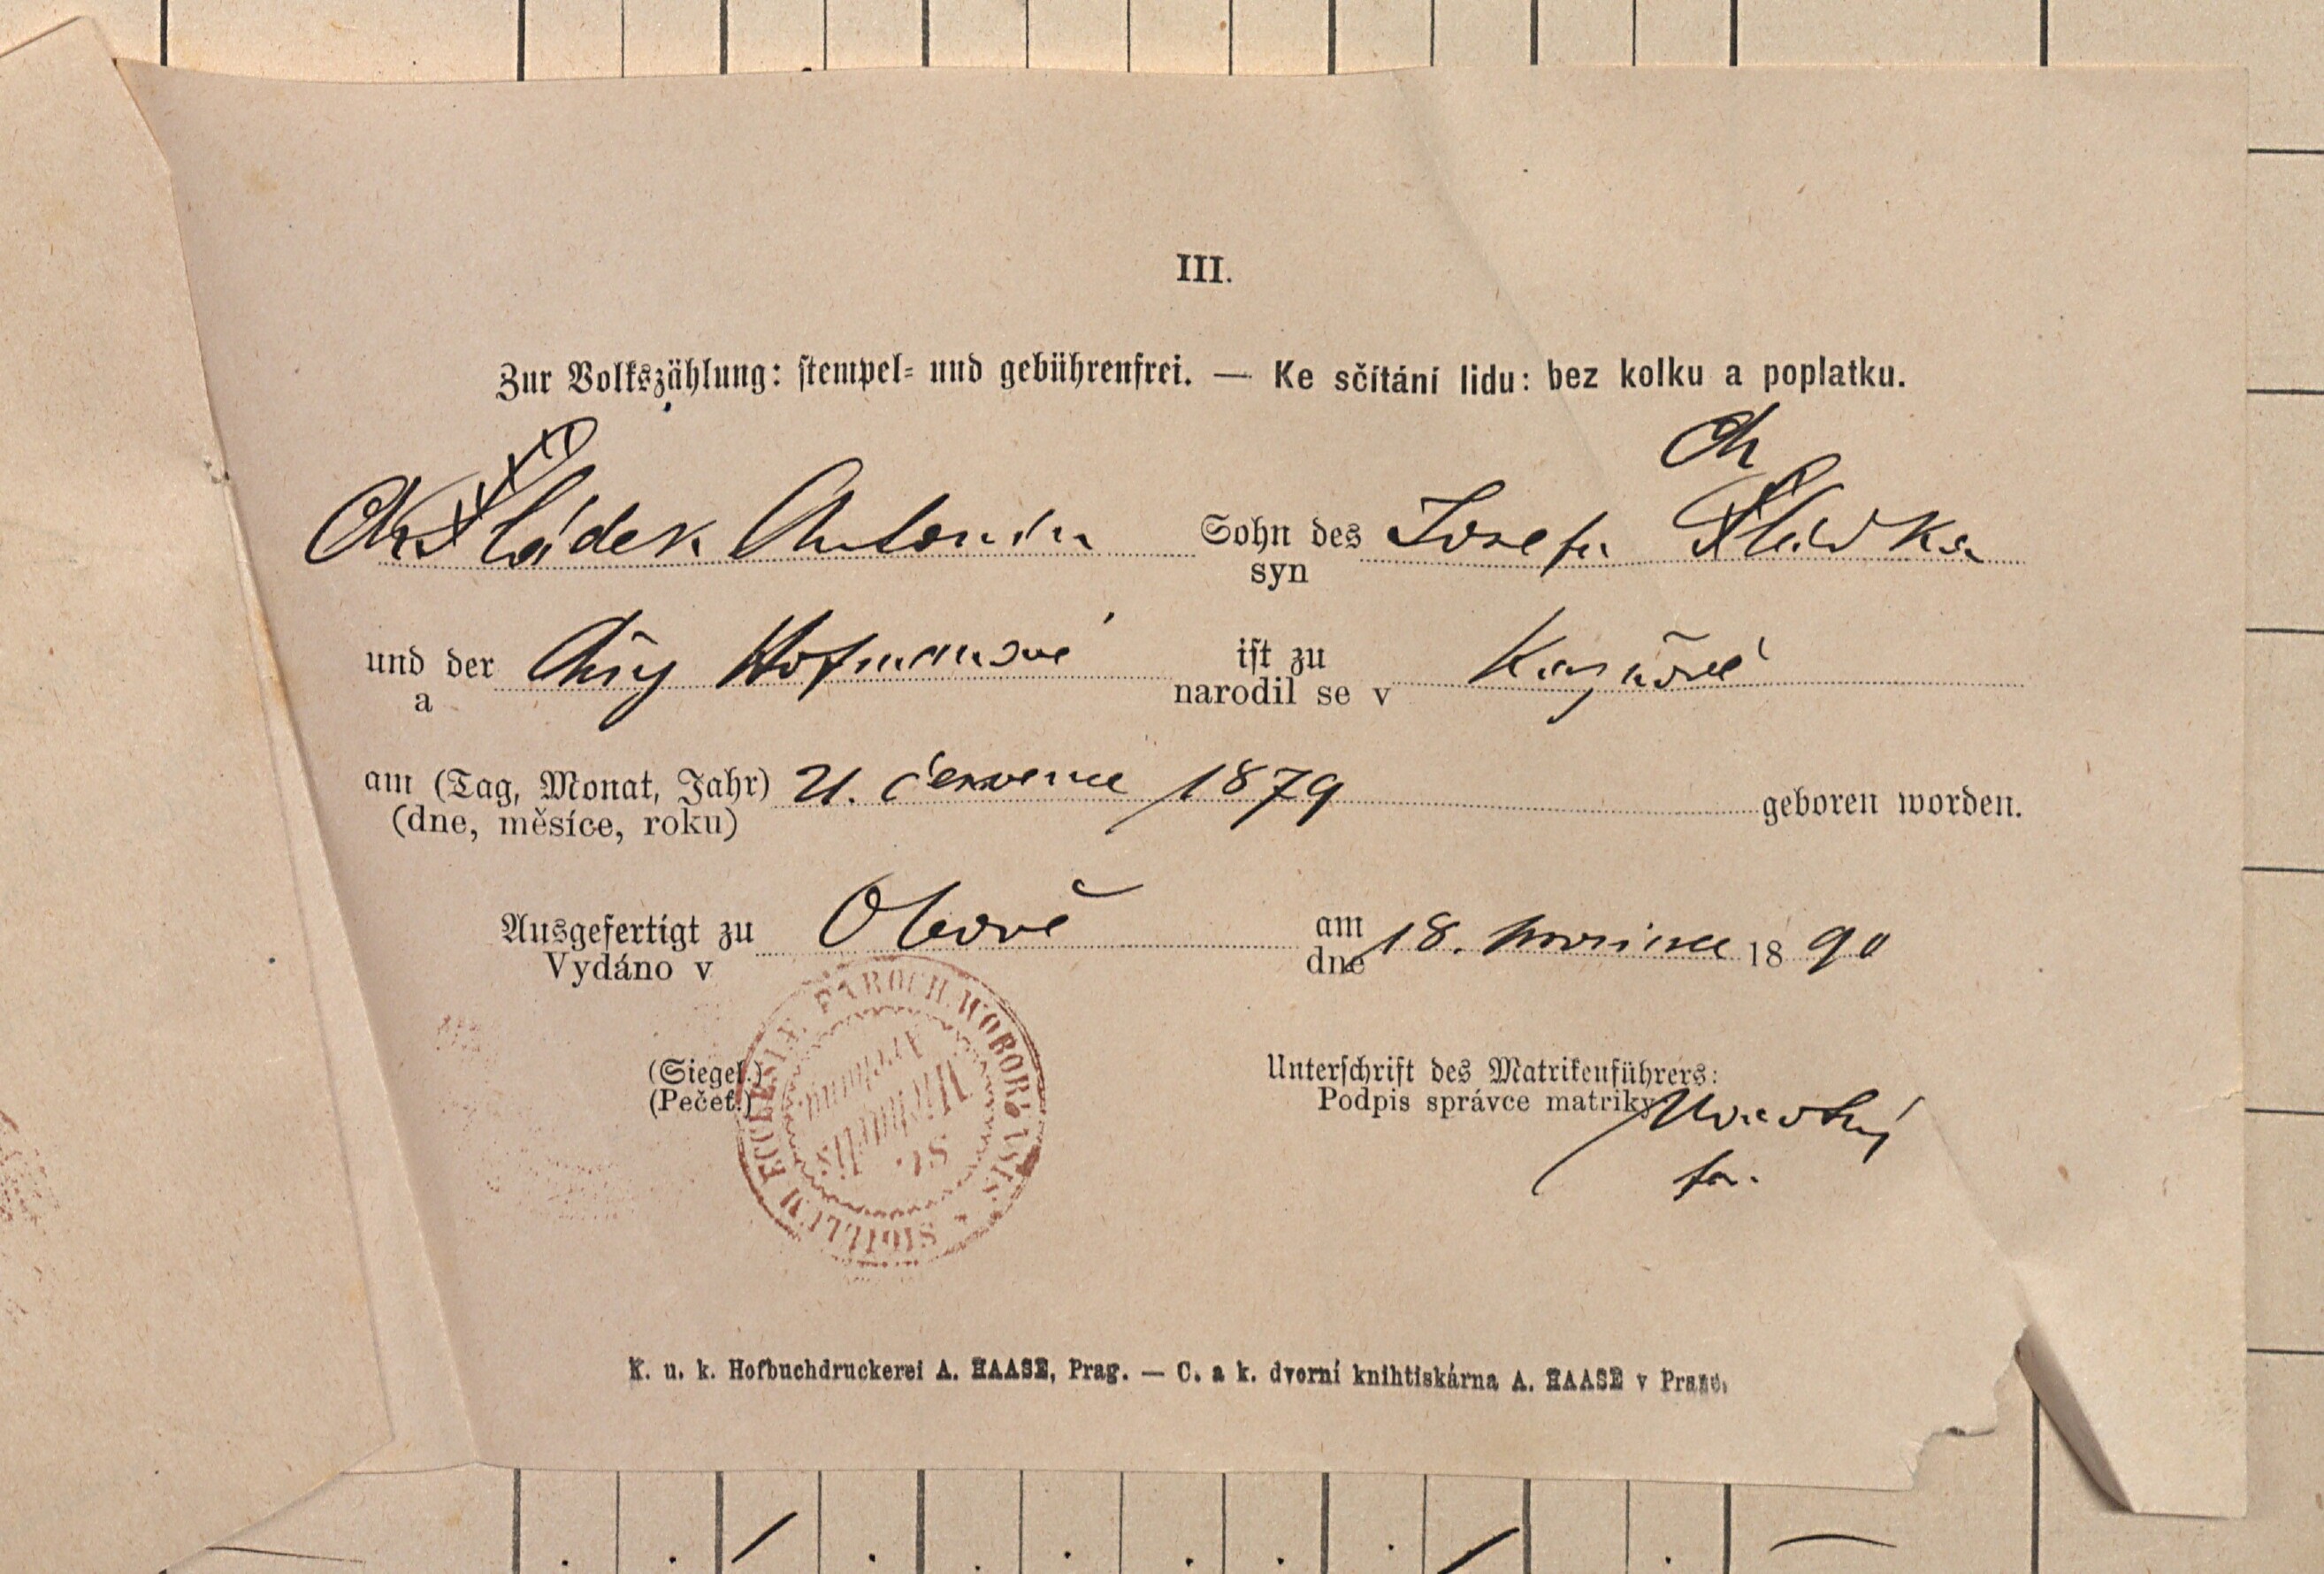 III.
Zur Volkszählung: stempel- und gebührenfrei. — Ke sčítání lidu: bez kolku a poplatku.
Ch
Chládek Antonín Sohn des Josefa Sládka
syn
und der Anny Hofmanové ist zu
a narodil se v
am (Tag, Monat, Jahr) 21. července 1879 geboren worden.
(dne, měsíce, roku)
Ausgefertigt zu am 18. prosince 1890
Vydáno v dne
(Siegel.) Unterschrift des Matrikenführers:
(Pečeť.) Podpis správce matriky
far.
SIGILLUM ECCLESIÆ PAROCH. WOBORI
St.
K. u. k. Hofbuchdruckerei A. HAASE, Prag. — C. a k. dvorní knihtiskárna A. HAASE v Praze.